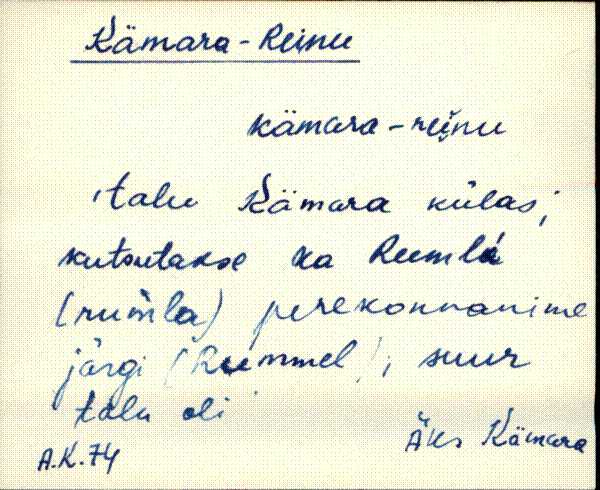 Kämara-Reinu
kämara-reinu
talu Kämara külas,
kutsutakse ka Rumla
(rumla) perekonnanime
järgi (Rummel), suur
talu oli
Äks Kämara
A.K.74